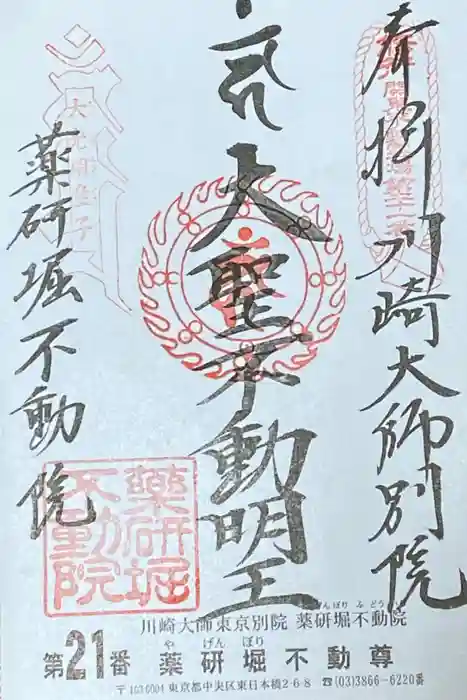 奉拝 川崎大師別院
大聖不動明王
薬研堀不動院
薬研堀
不動院
川崎大師東京別院 薬研堀不動院
第21番 薬研堀不動尊
〒103-0004 東京都中央区東日本橋2-6-8 ☎(03)3866-6220番